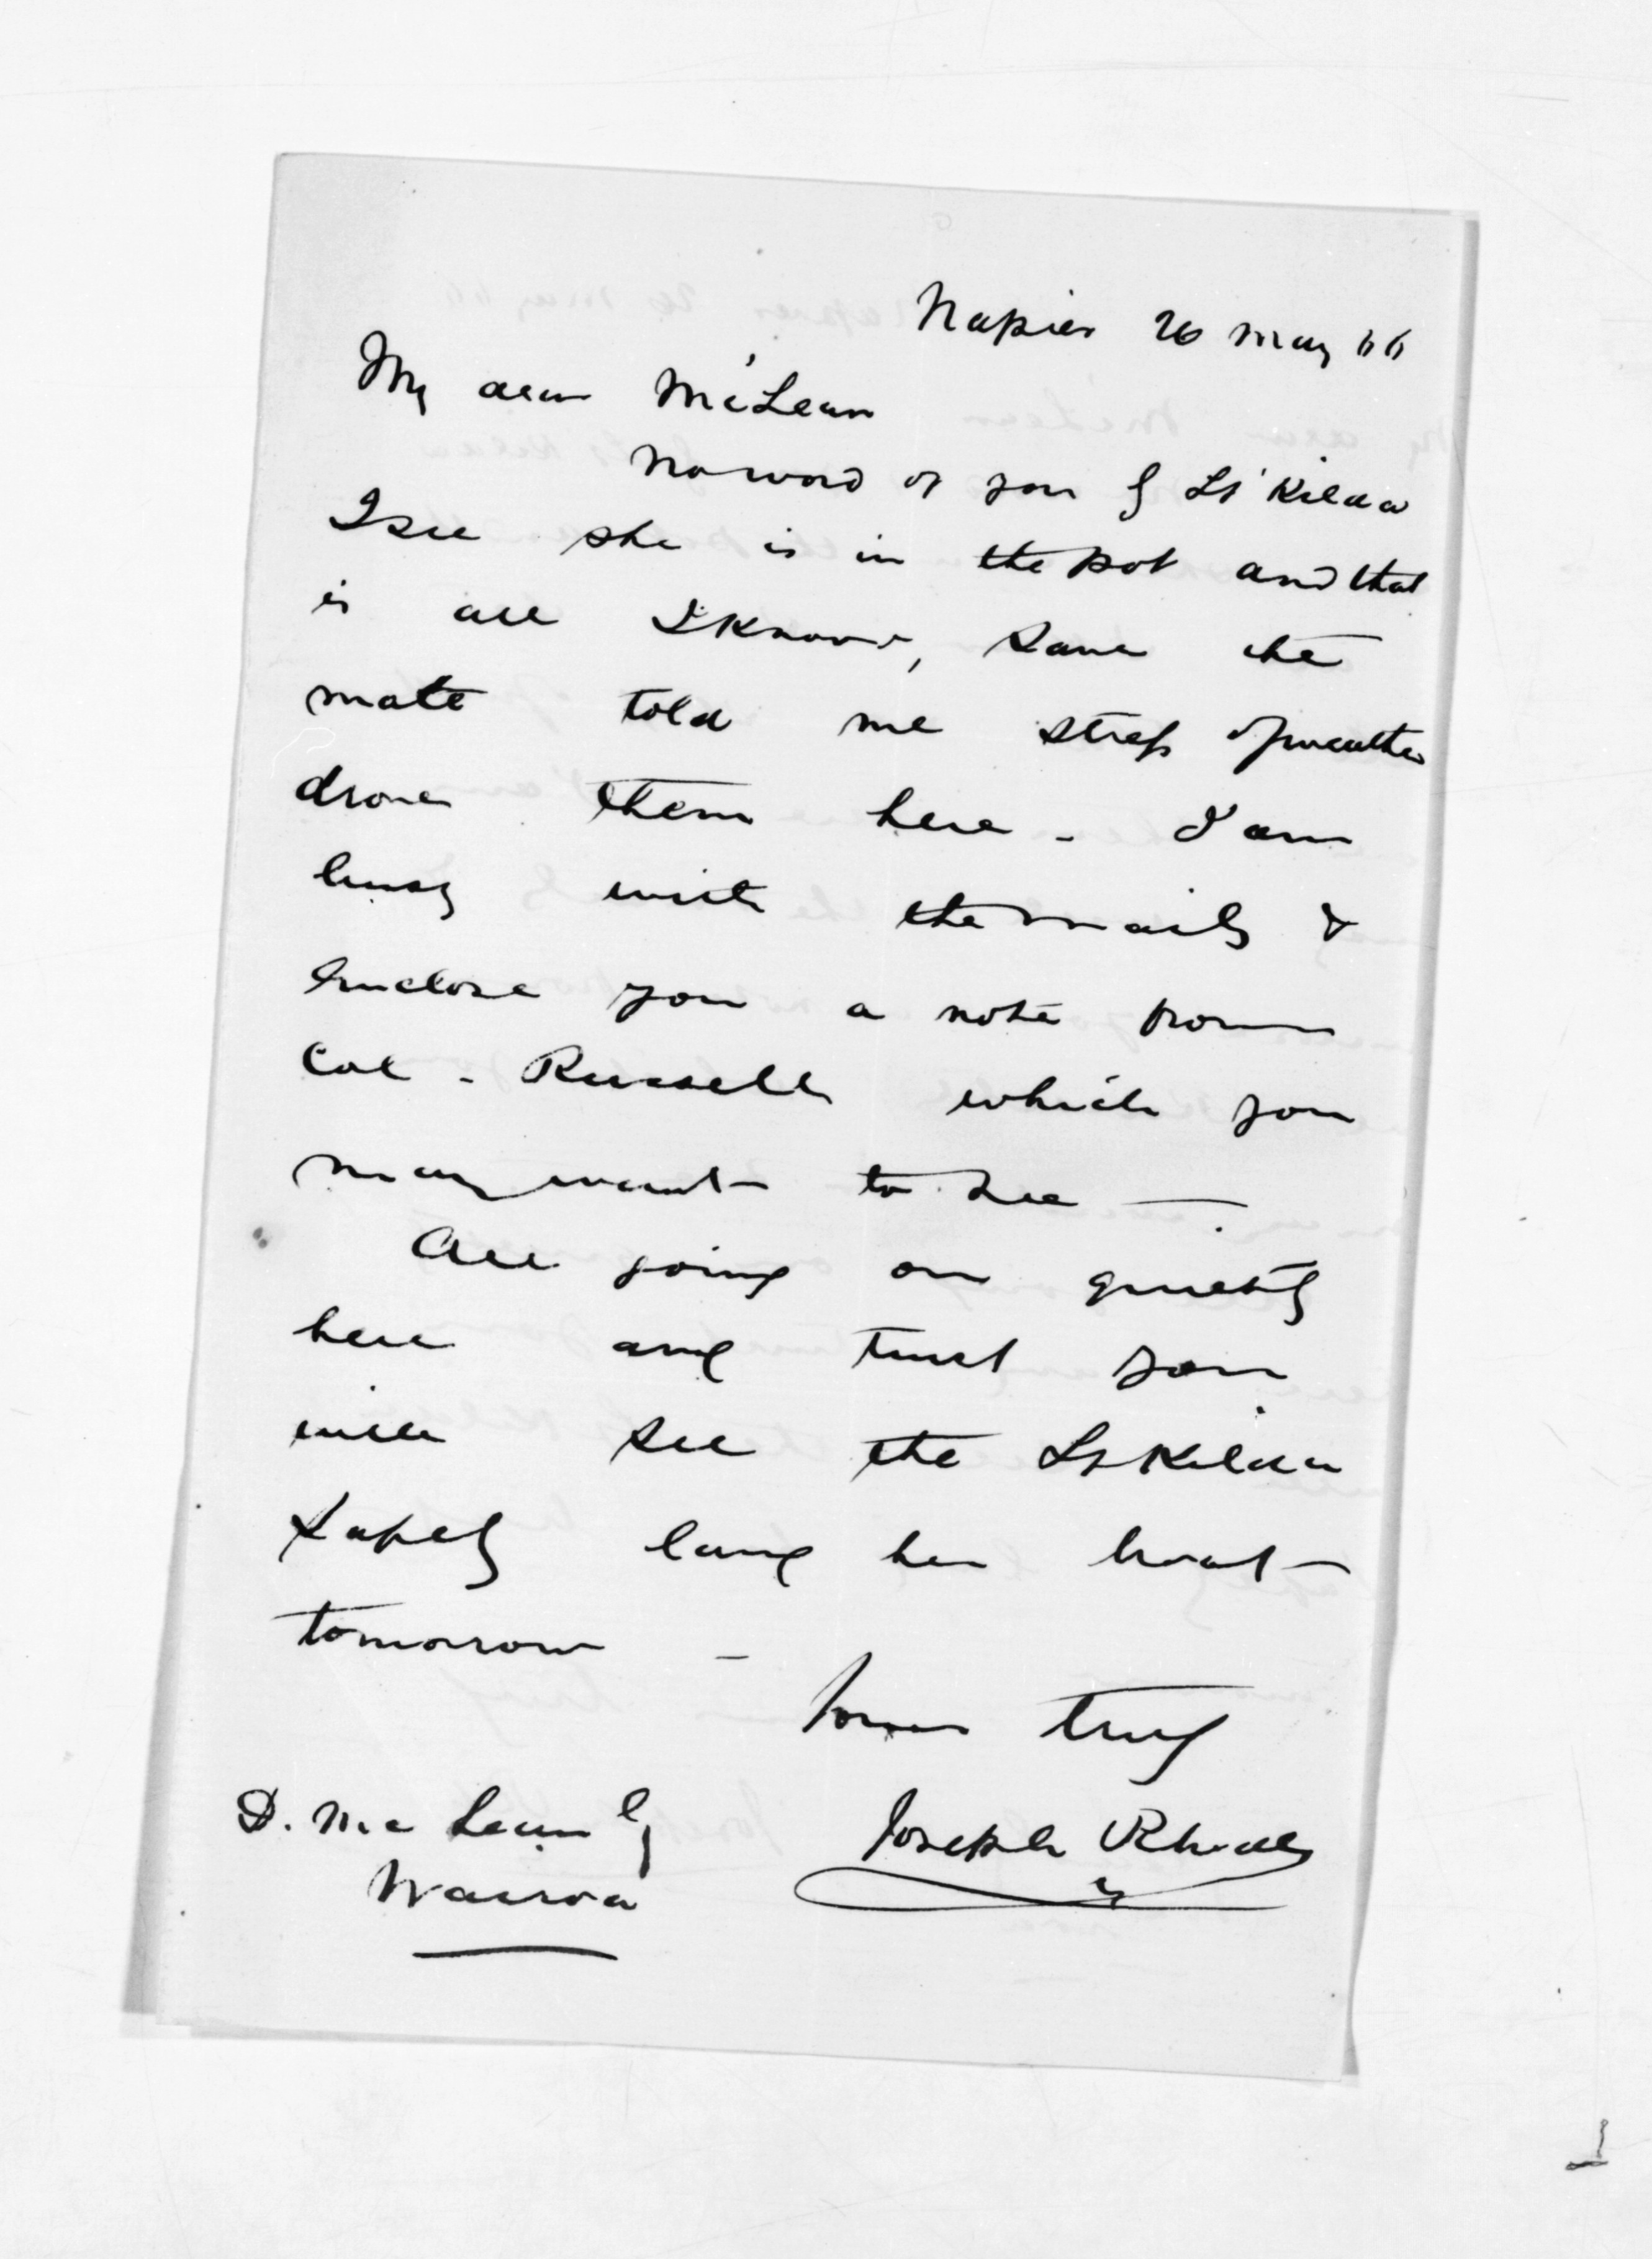 Napier 26 May 66
My dear McLean
No word of you by St Kilda
I see she is in the port and that
is all I know, save the
mate told me stress of weather
drove them here - I am
busy with the mails &
Enclose you a note from
Col - Russell which you
may want to see -
All going on quietly
here and trust you
will see the St Kilda
safely land her boat
tomorrow -
Yours truly
Joseph Rhodes
D. McLean Esq
Wairoa